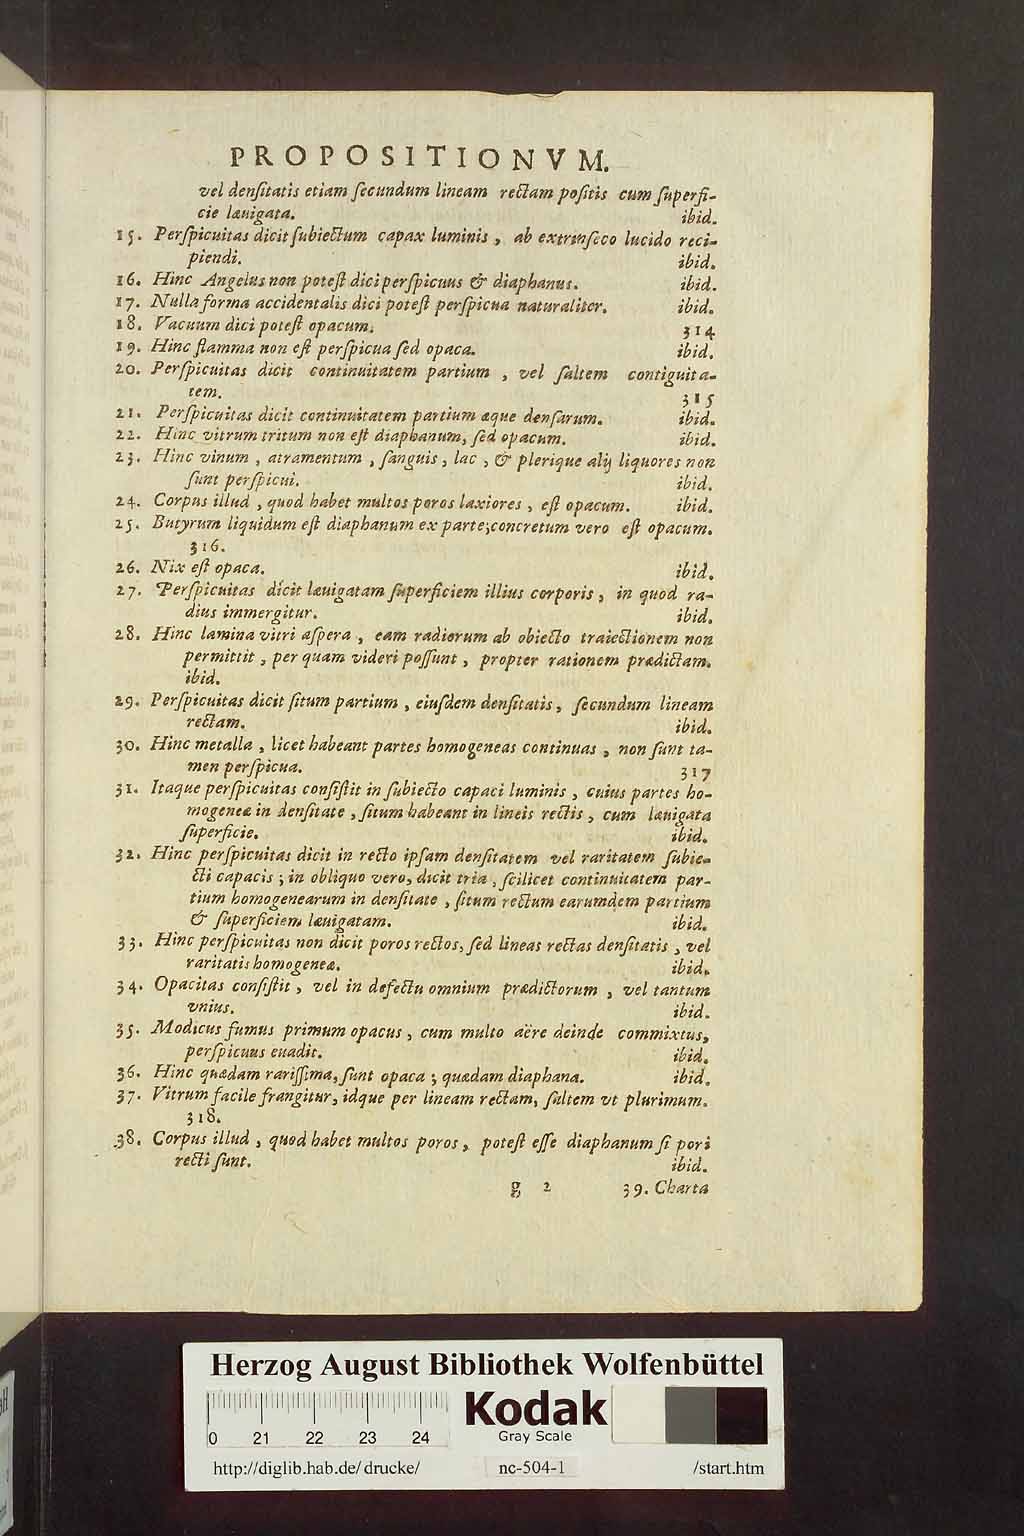 PROPOSITIONVM.
vel denſitatis etiam ſecundum lineam rectam poſitis cum ſuperfi-
cie læuigata. ibid.
15. Perſpicuitas dicit ſubiectum capax luminis, ab extrinſeco lucido reci-
piendi. ibid.
16. Hinc Angelus non poteſt dici perſpicuus & diaphanus. ibid.
17. Nulla forma accidentalis dici poteſt perſpicua naturaliter. ibid.
18. Vacuum dici poteſt opacum. 314
19. Hinc flamma non eſt perſpicua ſed opaca. ibid.
20. Perſpicuitas dicit continuitatem partium, vel ſaltem contiguita-
tem. 315
21. Perſpicuitas dicit continuitatem partium æque denſarum. ibid.
22. Hinc vitrum tritum non eſt diaphanum, ſed opacum. ibid.
23. Hinc vinum, atramentum, ſanguis, lac, & plerique alij liquores non
ſunt perſpicui. ibid.
24. Corpus illud, quod habet multos poros laxiores, eſt opacum. ibid.
25. Butyrum liquidum eſt diaphanum ex parte; concretum vero eſt opacum.
316.
26. Nix eſt opaca. ibid.
27. Perſpicuitas dicit læuigatam ſuperficiem illius corporis, in quod ra-
dius immergitur. ibid.
28. Hinc lamina vitri aſpera, eam radiorum ab obiecto traiectionem non
permittit, per quam videri poſſunt, propter rationem prædictam.
ibid.
29. Perſpicuitas dicit ſitum partium, eiuſdem denſitatis, ſecundum lineam
rectam. ibid.
30. Hinc metalla, licet habeant partes homogeneas continuas, non ſunt ta-
men perſpicua. 317
31. Itaque perſpicuitas conſiſtit in ſubiecto capaci luminis, cuius partes ho-
mogeneæ in denſitate, ſitum habeant in lineis rectis, cum læuigata
ſuperficie. ibid.
32. Hinc perſpicuitas dicit in recto ipſam denſitatem vel raritatem ſubie-
cti capacis; in obliquo vero, dicit tria, ſcilicet continuitatem par-
tium homogenearum in denſitate, ſitum rectum earumdem partium
& ſuperficiem læuigatam. ibid.
33. Hinc perſpicuitas non dicit poros rectos, ſed lineas rectas denſitatis, vel
raritatis homogeneæ. ibid.
34. Opacitas conſiſtit, vel in defectu omnium prædictorum, vel tantum
vnius. ibid.
35. Modicus fumus primum opacus, cum multo aëre deinde commixtus,
perſpicuus euadit. ibid.
36. Hinc quædam rariſſima, ſunt opaca; quædam diaphana. ibid.
37. Vitrum facile frangitur, idque per lineam rectam, ſaltem vt plurimum.
318.
38. Corpus illud, quod habet multos poros, poteſt eſſe diaphanum ſi pori
recti ſunt. ibid.
g 2 39. Charta
Herzog August Bibliothek Wolfenbüttel
0 21 22 23 24
Kodak
Gray Scale
http://diglib.hab.de/drucke/ nc-504-1 /start.htm